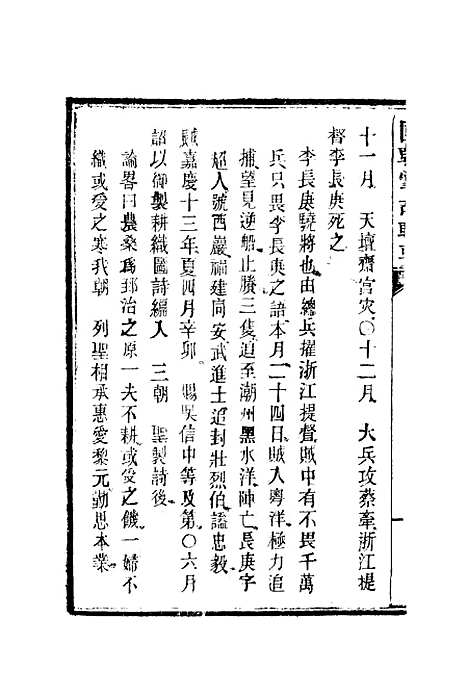 十一月　天壇齋宮灾〇十二月　大兵攻蔡牽浙江提
督李長庚死之
李長庚驍將也由總兵擢浙江提督賊中有不畏千萬
兵只畏李長庚之語本月二十四日賊入粤洋極力追
捕望見逆船止賸三隻追至潮州黑水洋陣亡長庚字
超人號西巖福建同安武進士追封壯烈伯謚忠毅
嘉慶十三年夏四月辛卯　賜吳信中等及第〇六月
詔以御製耕織圖詩編入　三朝　聖製詩後
諭畧曰農桑爲郅治之原一夫不耕或受之饑一婦不
織或受之寒我朝　列聖相承惠愛黎元勤思本業